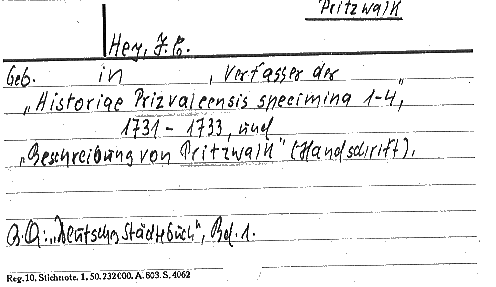 Pritzwalk
Hey, J.C.
Geb. in , Verfasser der
„Historiae Prizvalcensis specimina 1-4",
1731 - 1733, und
„Beschreibung von Pritzwalk" (Handschrift).
Q.Q.: „Deutsches Städtebuch", Bd. 1.
Reg. 10. Stichnote. 1, 50. 232000. A. 803. S. 4062